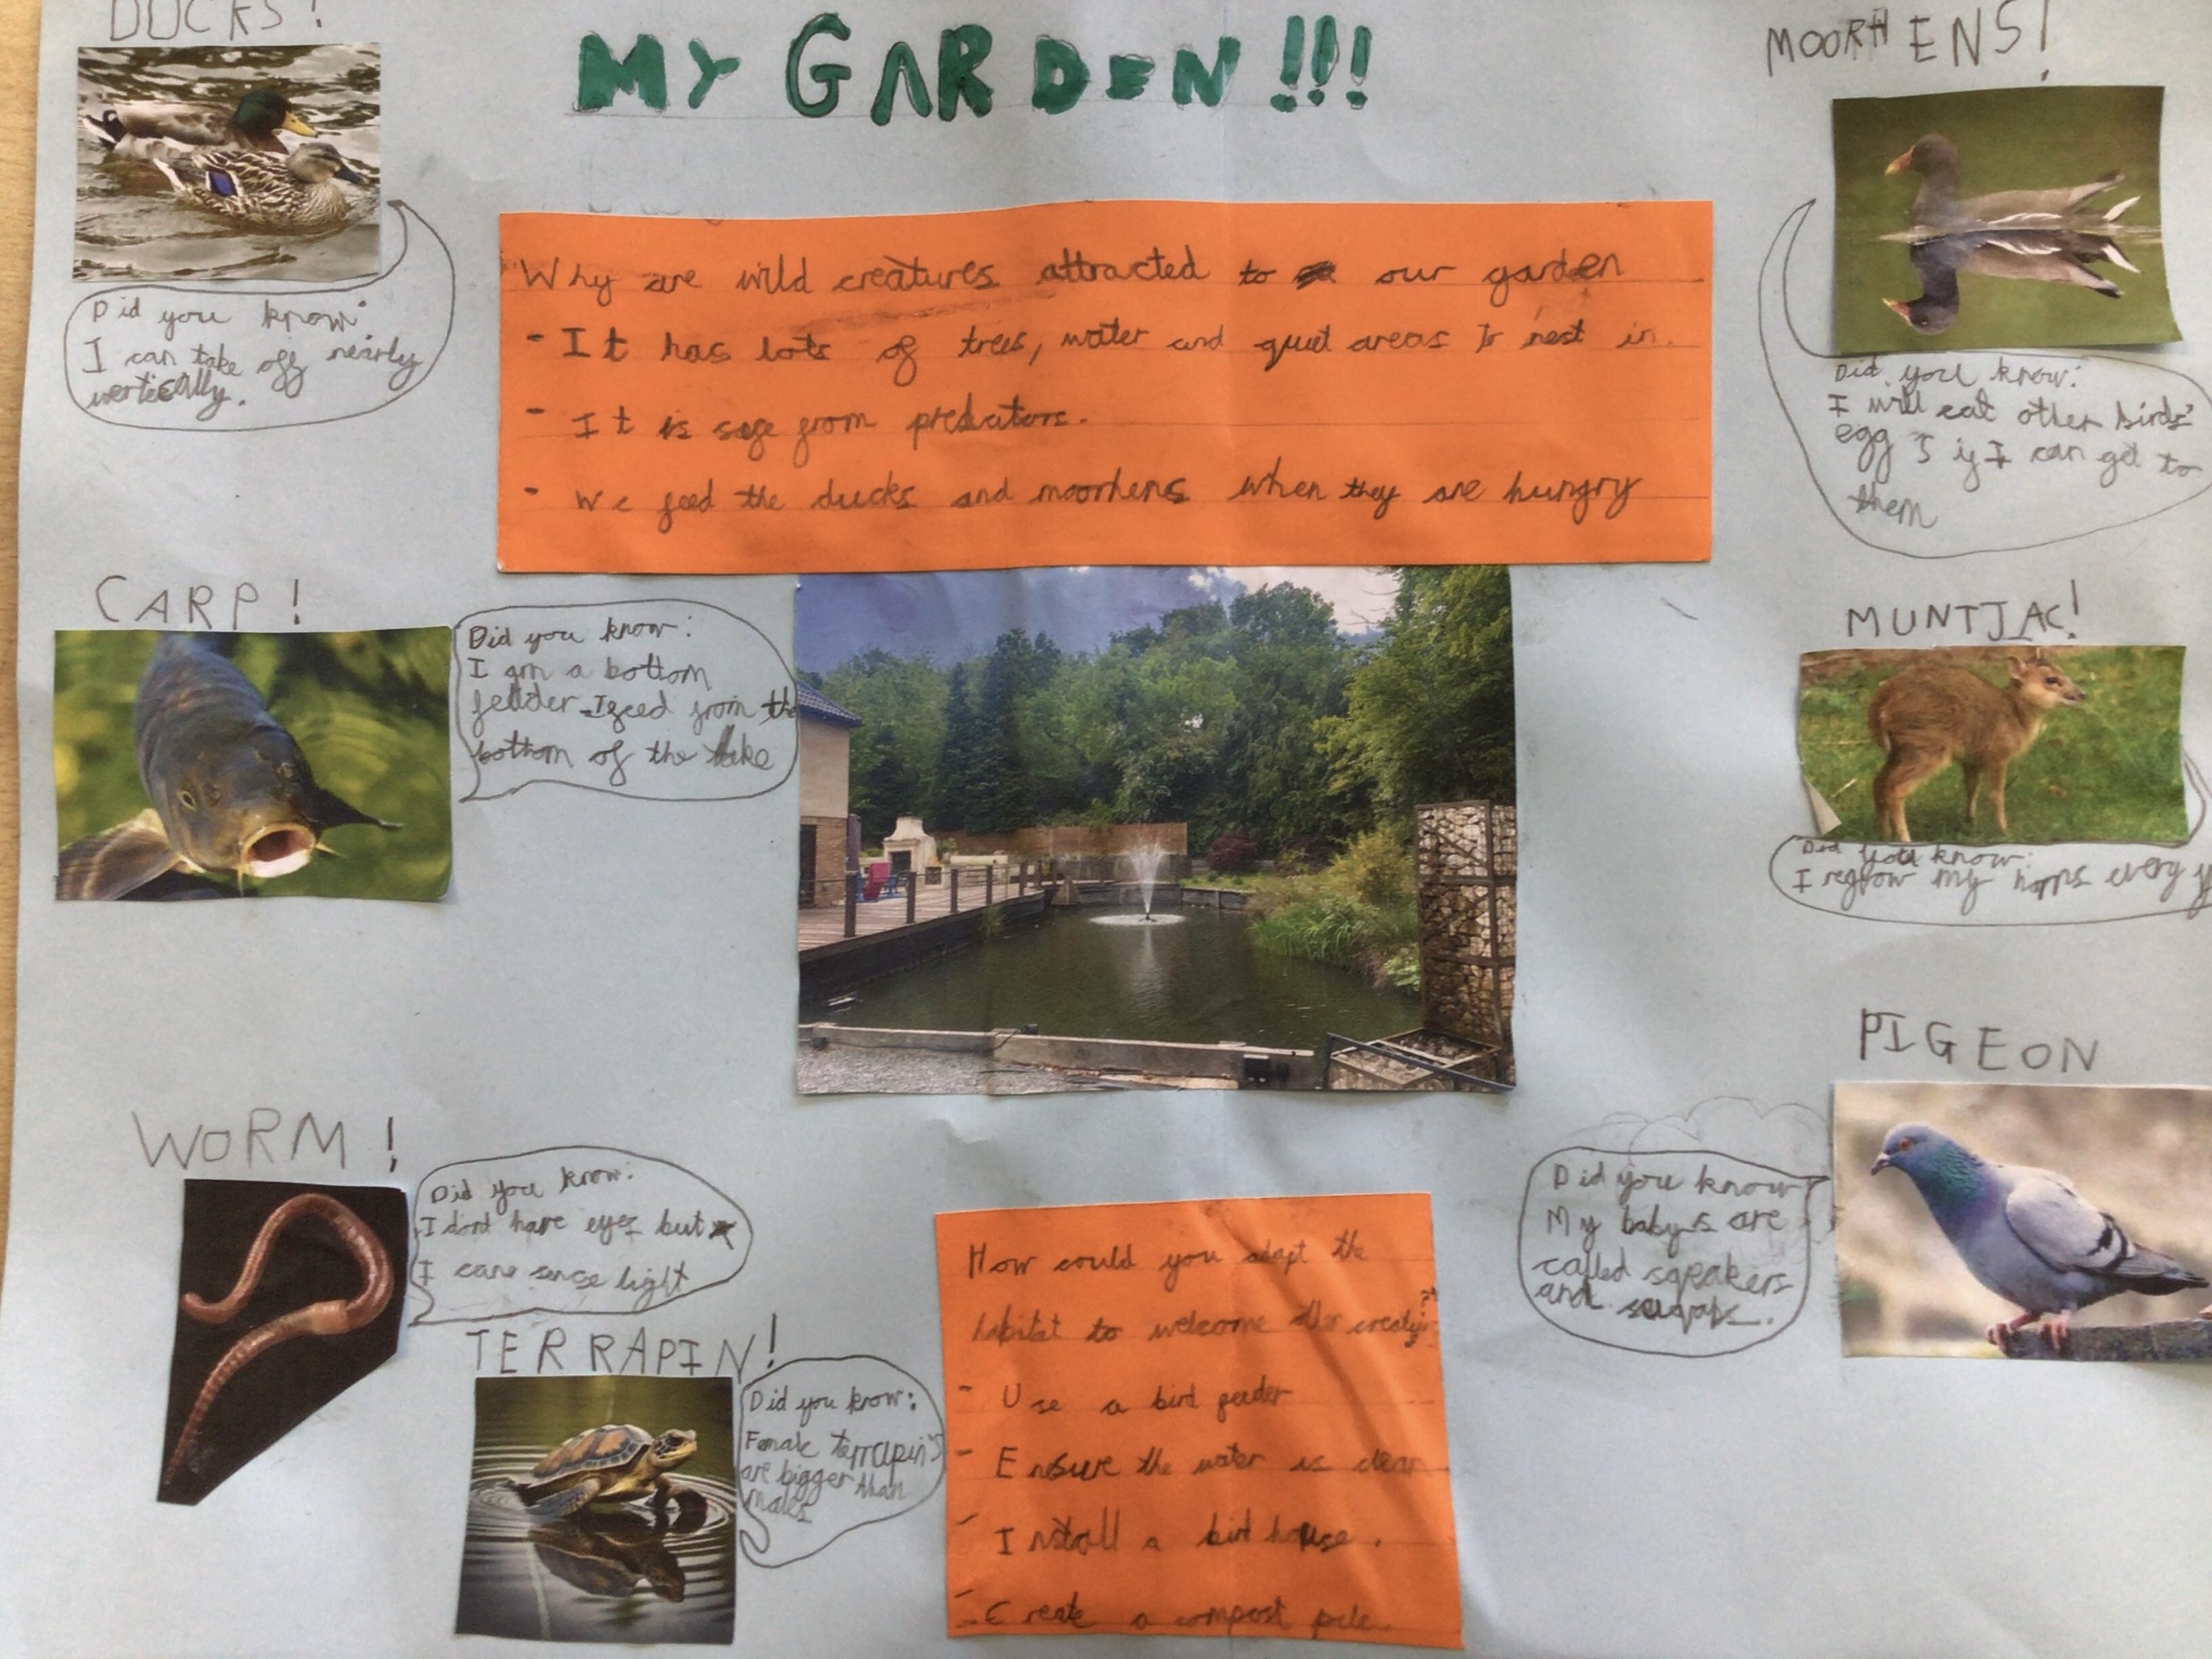 DUCKS!
MY GARDEN!!!
MOORHENS!
Did you know:
I can take off nearly
vertically.
Why are wild creatures attracted to our garden
- It has lots of trees, water and quiet areas to nest in.
- It is safe from predators.
- We feed the ducks and moorhens when they are hungry
Did you know:
I will eat other birds'
eggs if I can get to
them
CARP!
Did you know:
I am a bottom
feeder I feed from the
bottom of the lake
MUNTJAC!
Did you know:
I regrow my horns every
PIGEON
Did you know
My baby's are
called sqeakers
and
WORM!
Did you know:
I dont have eyes but
I can sense light
TERRAPIN!
Did you know:
Female terrapin's
are bigger than
males
How could you adapt the
habitat to welcome other
- Use a bird feeder
- Ensure the water is clean
- Install a bird house.
- Create a compost pile.